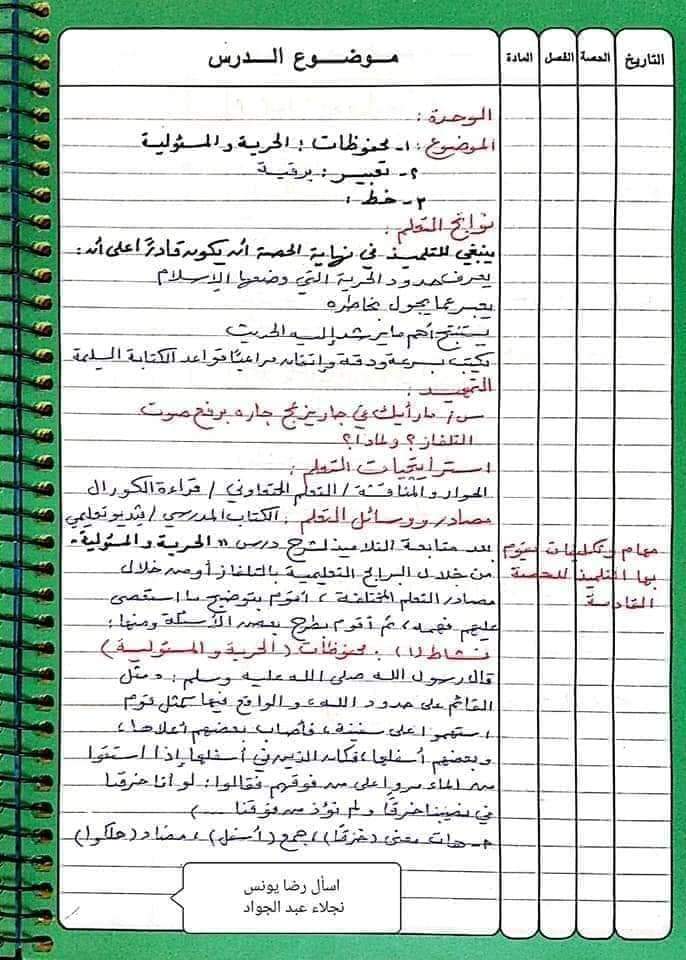 التاريخ
الحصة
الفصل
المادة
موضوع الدرس
الوحدة :
الموضوع : ١- محفوظات : الحرية والمسئولية
٢- تعبير : برقية
٣- خط :
نواتج التعلم :
ينبغي للتلميذ في نهاية الحصة أن يكون قادرًا على أن :
يعرف حدود الحرية التي وضعها الإسلام
يعبر عما يجول بخاطره
يستنتج أهم ما يرشد إليه الحديث
يكتب بسرعة ودقة وإتقان مراعيًا قواعد الكتابة السليمة
التمهيد :
س/ ما رأيك في جار يزعج جاره برفع صوت
التلفاز ؟ ولماذا ؟
استراتيجيات التعلم :
الحوار والمناقشة / التعلم التعاوني / قراءة الكورال
مصادر ووسائل التعلم : الكتاب المدرسي / فيديو تعليمي
بعد متابعة التلاميذ لشرح درس " الحرية والمسئولية "
من خلال البرامج التعليمية بالتلفاز أو من خلال
مصادر التعلم المختلفة ، أقوم بتوضيح ما استعصى
عليهم فهمه ، ثم أقوم بطرح بعض الأسئلة ومنها :
نشاط (١) : محفوظات ( الحرية والمسئولية )
قال رسول الله صلى الله عليه وسلم : " مثل
القائم على حدود الله ، والواقع فيها كمثل قوم
استهموا على سفينة ، فأصاب بعضهم أعلاها ،
وبعضهم أسفلها ، فكان الذين في أسفلها إذا استقوا
من الماء مروا على من فوقهم فقالوا : لو أنا خرقنا
في نصيبنا خرقًا ولم نؤذ من فوقنا ....)
٢- هات معنى (خرقًا) ، جمع (أسفل) ، مضاد (هلكوا)
مهام وتكليفات يقوم
بها التلميذ للحصة
القادمة
اسأل رضا يونس
نجلاء عبد الجواد